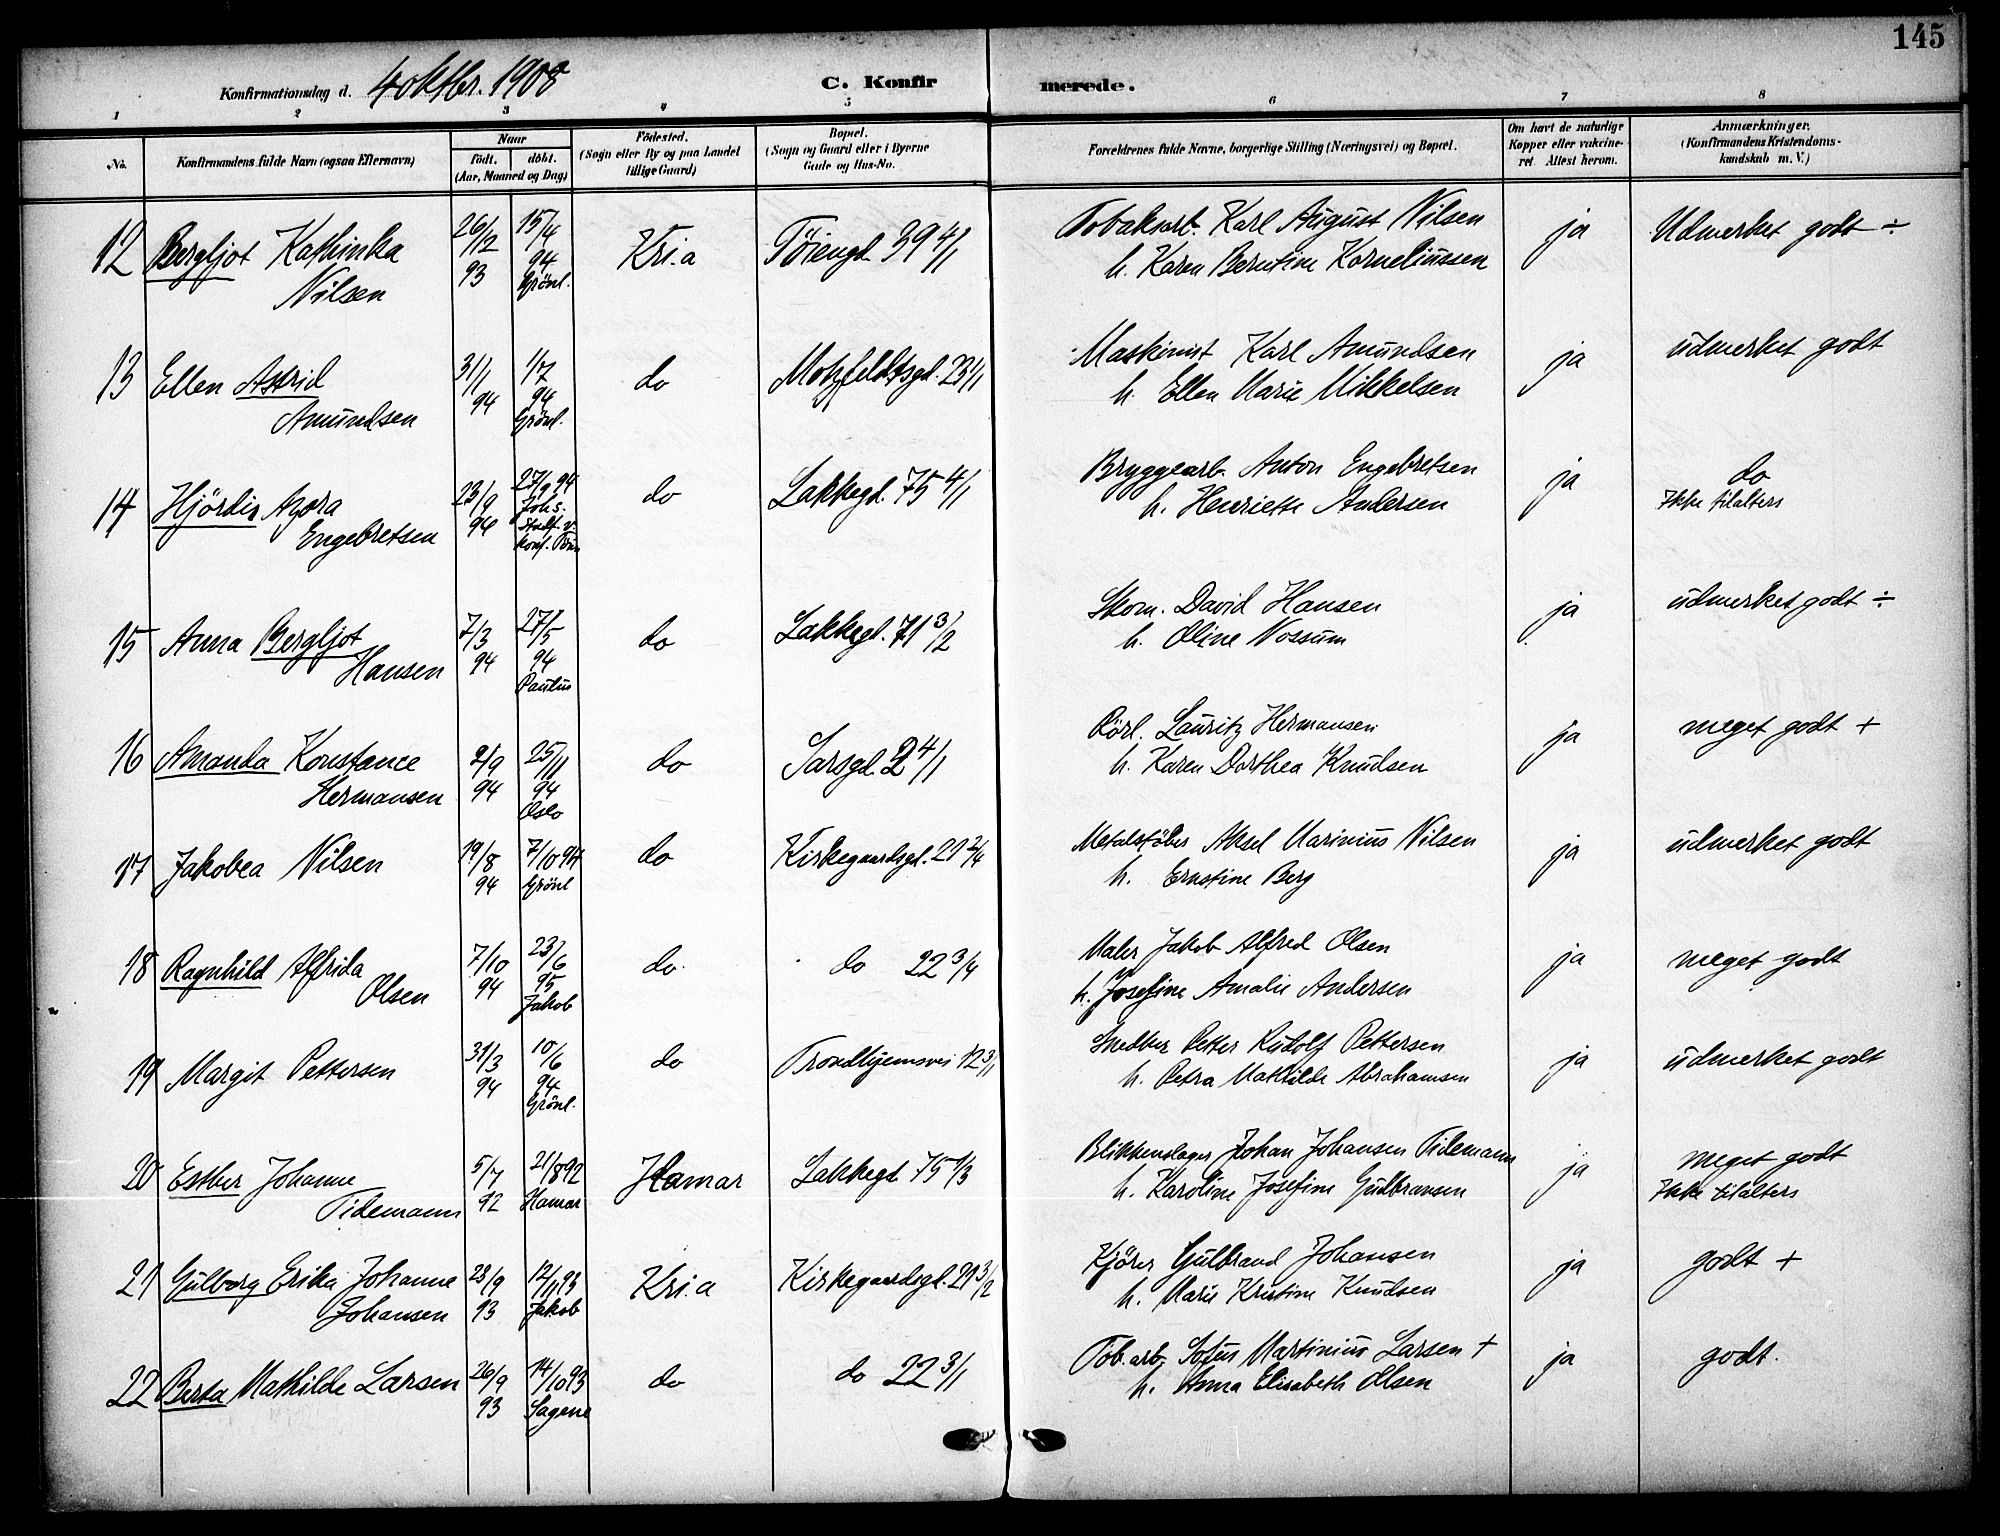 145
Konfirmationsdag d. 4 oktbr. 1908
C. Konfirmerede.
1 2 3 4 5 6 7 8
No.
Konfirmandens fulde Navn (ogsaa Efternavn)
Naar
födt. döbt.
(Aar, Maaned og Dag)
Födested.
(Sogn eller By og paa Landet
tillige Gaard)
Bopæl.
(Sogn og Gaard eller i Byerne
Gade og Hus-No.
Forældrenes fulde Navne, borgerlige Stilling (Næringsvei) og Bopæl.
Om havt de naturlige
Kopper eller vakcineret.
Attest herom.
Anmærkninger.
(Konfirmandens Kristendomskundskab
m. V.)
12 Bergljot Kathinka 26/12 15/4 Kr.i.a Töiengd. 39 4/1 Tobaksarb. Karl August Nilsen ja Udmerket godt ÷
Nilsen 93 94 Grönl. h. Karen Berntine Korneliussen
13 Ellen Astrid 31/1 1/7 do Motzfeldtsgd. 23 1/1 Maskinist Karl Amundsen ja udmerket godt
Amundsen 94 94 Grönl. h. Ellen Marie Mikkelsen
14 Hjördis Agora 23/9 27/9 94 do Lakkegd. 75 4/1 Bryggearb. Anton Engebretsen ja do
Engebretsen 94 Johs. h. Henriette Andersen Ikke tilalters
15 Anna Bergljot 7/3 27/5 do Lakkegd. 71 3/2 Skom. David Hansen ja udmerket godt ÷
Hansen 94 94 Paulus h. Oline Nossum
16 Amanda Konstance 2/9 25/11 do Sarsgd. 2 4/1 Rörl. Lauritz Hermansen ja meget godt +
Hermansen 94 94 Oslo h. Karen Dorthea Knudsen
17 Jakobea Nilsen 19/8 7/10 94 do Kirkegaardsgd. 21 2/4 Metalstöber Aksel Marinius Nilsen ja udmerket godt
94 Grönl h. Ernstine Berg
18 Ragnhild Alfrida 7/10 23/6 do. do 22 3/4 Maler Jakob Alfred Olsen ja meget godt
Olsen 94 95 Jakob h. Josefine Amalie Andersen
19 Margit Pettersen 31/3 10/6 do Trondhjemsvei 12 3/1 Smedber Petter Rudolf Pettersen ja udmerket godt
94 94 Grönl. h. Petra Mathilde Abrahamsen
20 Esther Johanne 5/7 21/8 92 Hamar Lakkegd 75 1/3 Blikkenslager Johan Johansen Tidemann ja meget godt
Tidemann 92 Hamar h. Karoline Josefine Gudbransen Ikke tilalters
21 Gulborg Erika Johanne 23/9 12/11 93 Kr.i.a Kirkegaardsgd. 21 3/2 Kjörer Gulbrand Johansen ja godt +
Johansen 93 Jakob h. Marie Kristine Knudsen
22 Berta Mathilde Larsen 26/9 14/10 93 do do 22 3/1 Tob.arb. Sofus Martinius Larsen + ja godt.
93 Sagene h. Anna Elisabeth Olsen